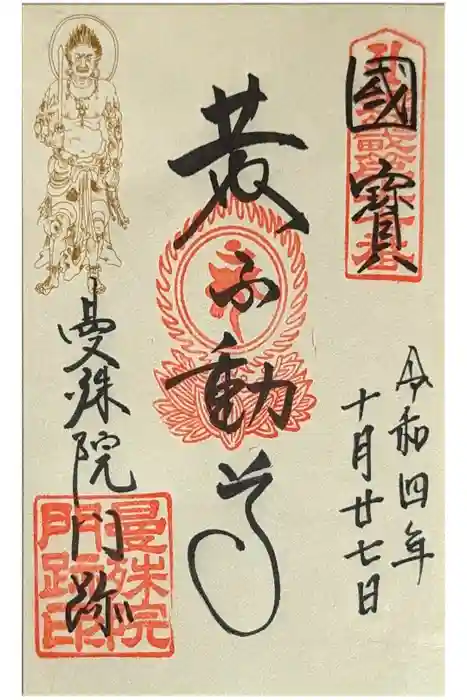 國寶
令和四年
十月廿七日
黄不動尊
曼殊院門跡
曼殊院
門跡印